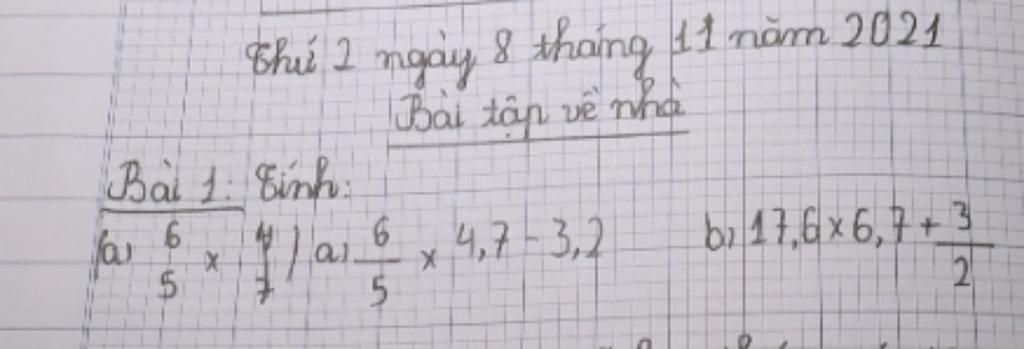 Thứ 2 ngày 8 tháng 11 năm 2021
Bài tập về nhà
Bài 1: Tính:
(a) 6/5 × 4/7 ) a) 6/5 × 4,7 - 3,2 b) 17,6 × 6,7 + 3/2